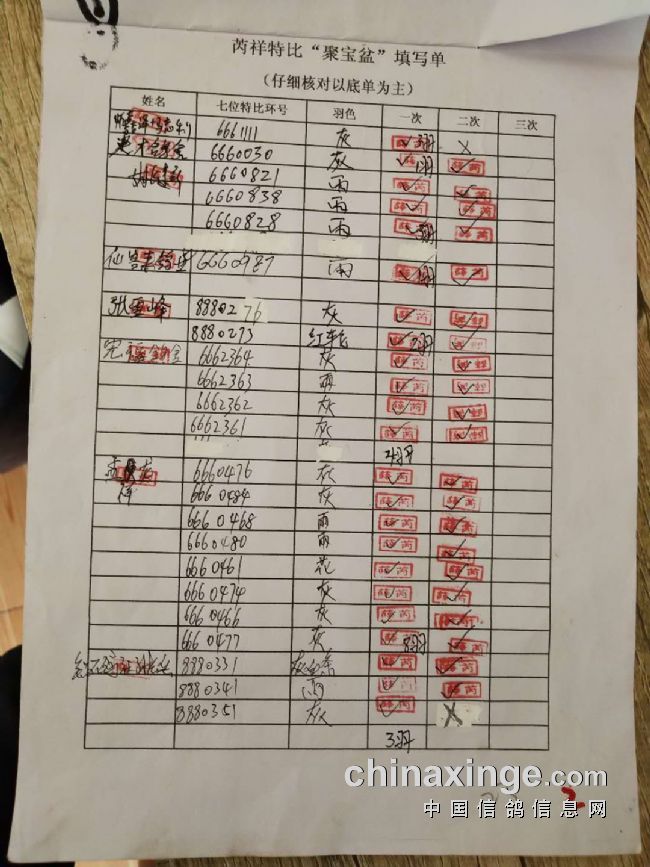 芮祥特比“聚宝盆”填写单
（仔细核对以底单为主）
姓名 七位特比环号 羽色 一次 二次 三次
6661111 灰 3羽 X
6660030 灰 1羽
6660821 雨
6660838 雨
6660828 雨 3羽
6660987 雨 1羽
张雪峰 8880276 灰
8880273 红轮 2羽
6662364 灰
6662363 雨
6662362 灰
6662361 灰
4羽
6660476 灰
6660484 灰
6660468 雨
6660480 雨
6660461 花
6660474 灰
6660466 灰
6660477 灰 8羽
8880331
8880341 雨
8880351 灰 X
3羽
chinaxinge.com
中国信鸽信息网
2